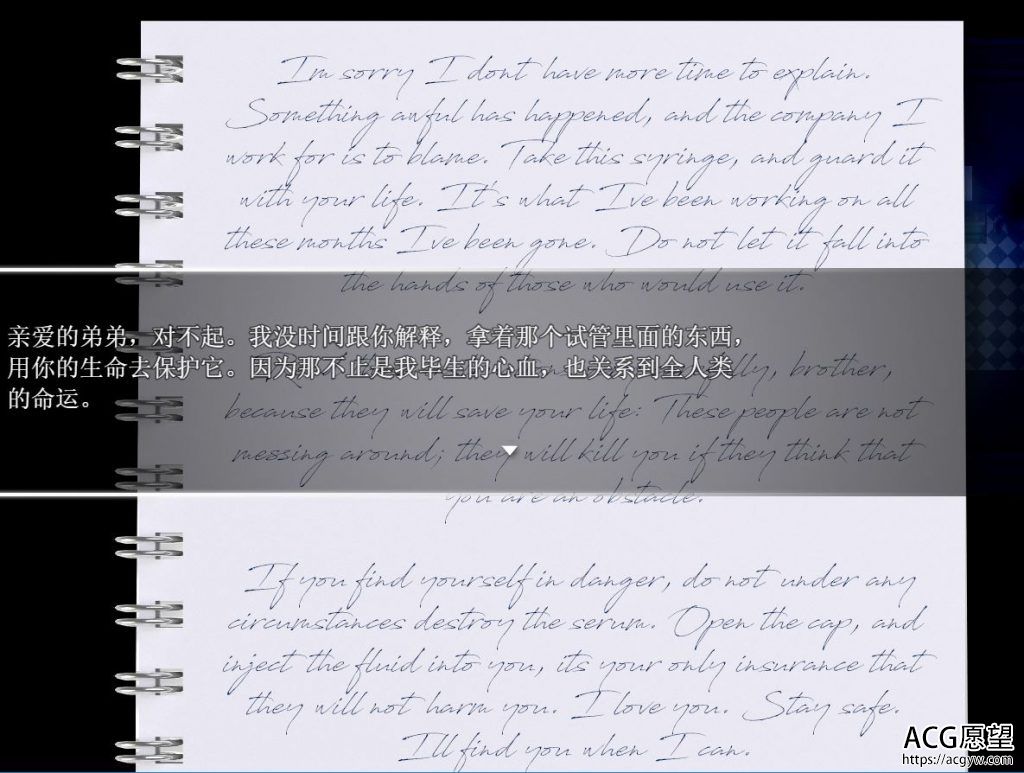 Im sorry I dont have more time to explain.
Something awful has happened, and the company I
work for is to blame. Take this syringe, and guard it
with your life. It's what Ive been working on all
these months Ive been gone. Do not let it fall into
the hands of those who would use it.
亲爱的弟弟，对不起。我没时间跟你解释，拿着那个试管里面的东西，
用你的生命去保护它。因为那不止是我毕生的心血，也关系到全人类
的命运。
brother,
because they will save your life: These people are not
messing around; they will kill you if they think that
you are an obstacle.
If you find yourself in danger, do not under any
circumstances destroy the serum. Open the cap, and
inject the fluid into you, its your only insurance that
they will not harm you. I love you. Stay safe.
Ill find you when I can.
ACG愿望
https://acgyw.com